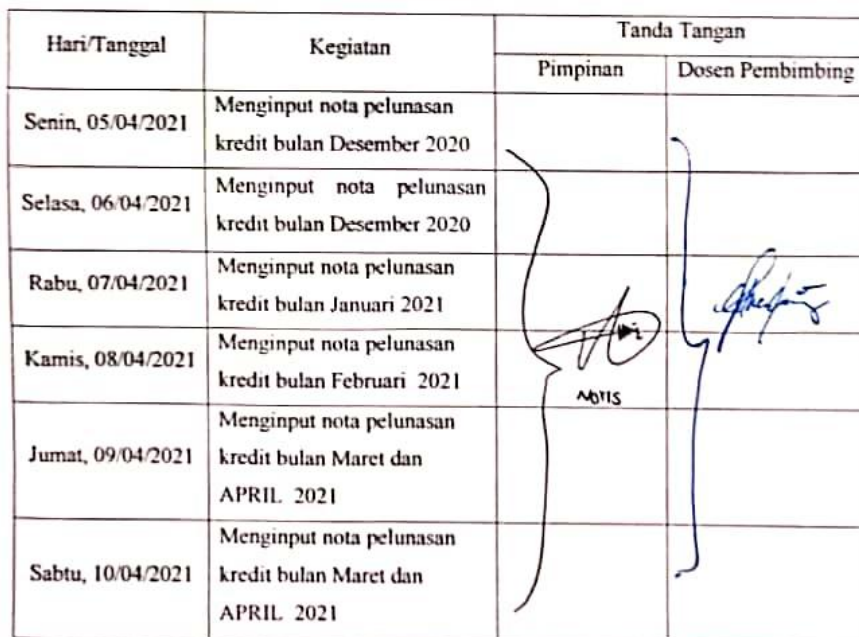 Hari/Tanggal Kegiatan Tanda Tangan
Pimpinan Dosen Pembimbing
Senin, 05/04/2021 Menginput nota pelunasan
kredit bulan Desember 2020
Selasa, 06/04/2021 Menginput nota pelunasan
kredit bulan Desember 2020
Rabu, 07/04/2021 Menginput nota pelunasan
kredit bulan Januari 2021
Kamis, 08/04/2021 Menginput nota pelunasan
kredit bulan Februari 2021
Jumat, 09/04/2021 Menginput nota pelunasan
kredit bulan Maret dan
APRIL 2021
Sabtu, 10/04/2021 Menginput nota pelunasan
kredit bulan Maret dan
APRIL 2021